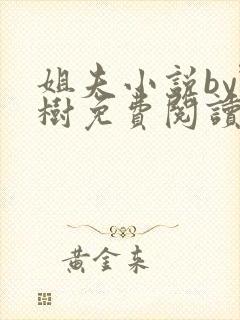 姐夫小説by
樹免費閱讀
黃金来